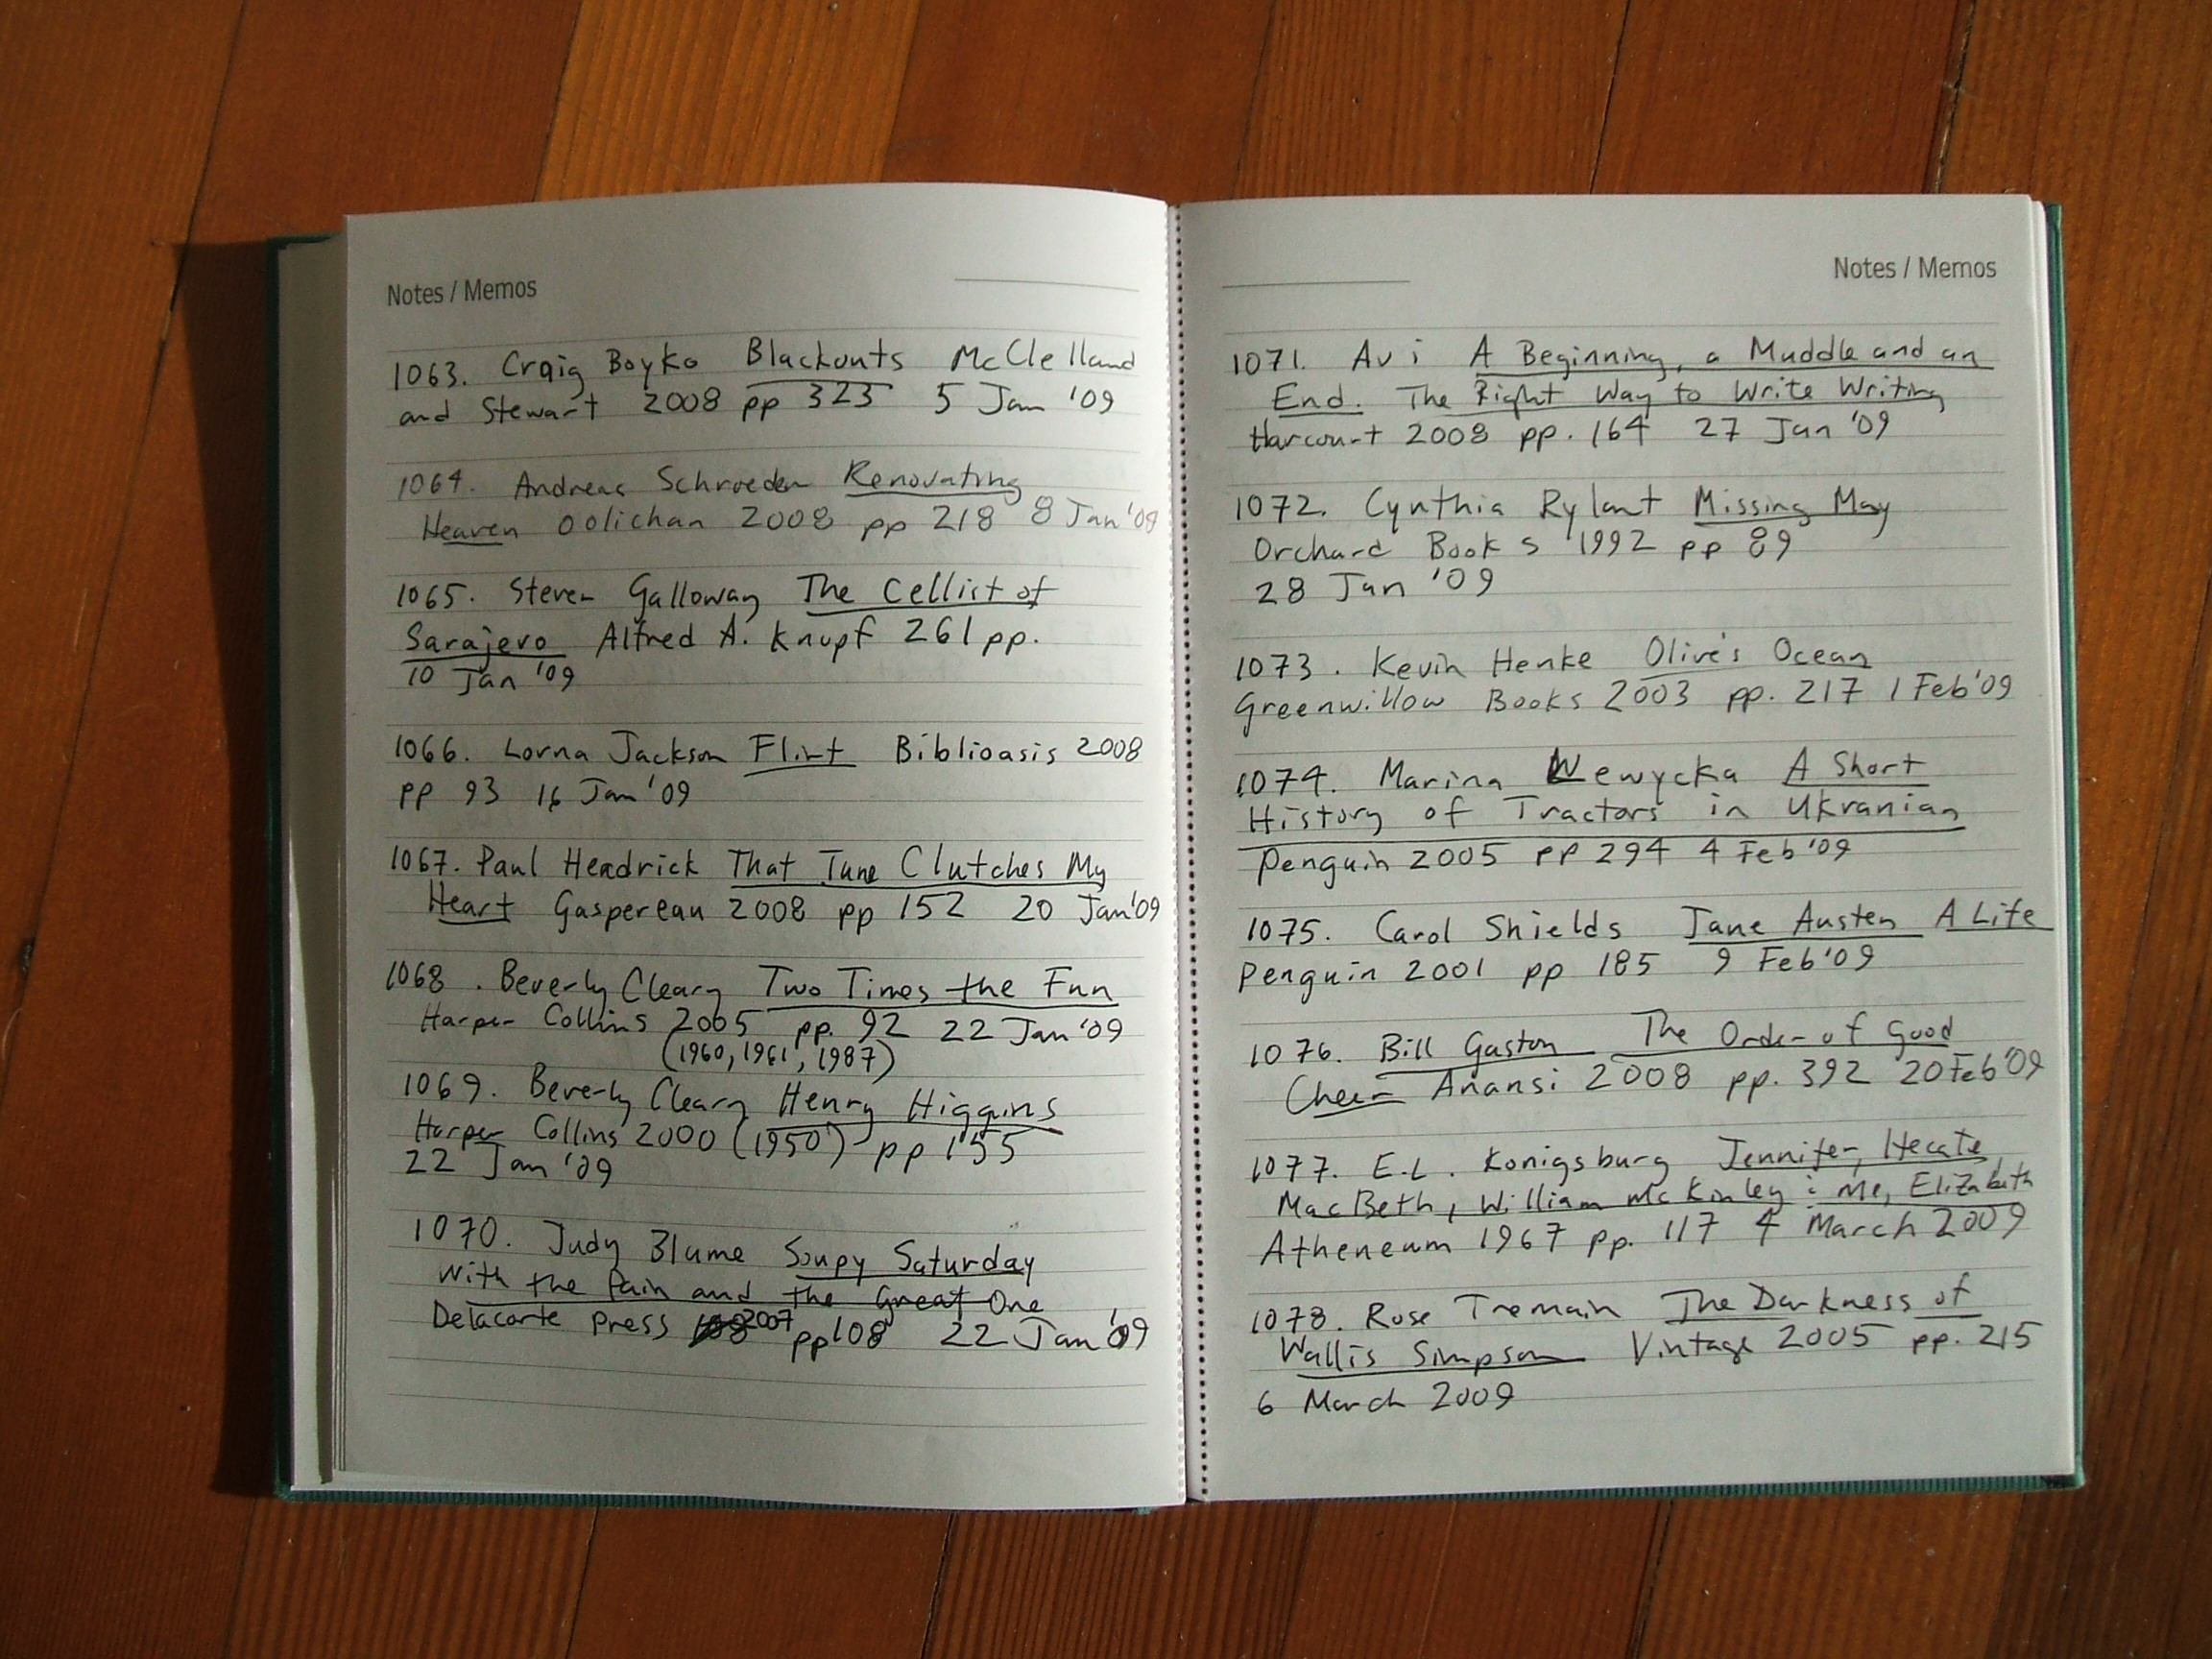 Notes / Memos
1063. Craig Boyko Blackouts McClelland
and Stewart 2008 pp 323 5 Jan '09
1064. Andreas Schroeder Renovating
Heaven Oolichan 2008 pp 218 8 Jan '09
1065. Steven Galloway The Cellist of
Sarajevo Alfred A. Knopf 261 pp.
10 Jan '09
1066. Lorna Jackson Flirt Biblioasis 2008
pp 93 16 Jan '09
1067. Paul Headrick That Tune Clutches My
Heart Gaspereau 2008 pp 152 20 Jan '09
1068. Beverly Cleary Two Times the Fun
Harper Collins 2005 pp. 92 22 Jan '09
(1960, 1961, 1987)
1069. Beverly Cleary Henry Higgins
Harper Collins 2000 (1950) pp 155
22 Jan '09
1070. Judy Blume Soupy Saturday
with the Pain and the Great One
Delacorte Press 2007 pp 108 22 Jan '09
Notes / Memos
1071. Avi A Beginning, a Muddle and an
End. The Right Way to Write Writing
Harcourt 2008 pp. 164 27 Jan '09
1072. Cynthia Rylant Missing May
Orchard Books 1992 pp 89
28 Jan '09
1073. Kevin Henke Olive's Ocean
Greenwillow Books 2003 pp. 217 1 Feb '09
1074. Marina Lewycka A Short
History of Tractors in Ukranian
Penguin 2005 pp 294 4 Feb '09
1075. Carol Shields Jane Austen A Life
Penguin 2001 pp 185 9 Feb '09
1076. Bill Gaston The Order of Good
Cheer Anansi 2008 pp. 392 20 Feb '09
1077. E.L. Konigsburg Jennifer, Hecate,
MacBeth, William McKinley : Me, Elizabeth
Atheneum 1967 pp. 117 4 March 2009
1078. Rose Tremain The Darkness of
Wallis Simpson Vintage 2005 pp. 215
6 March 2009